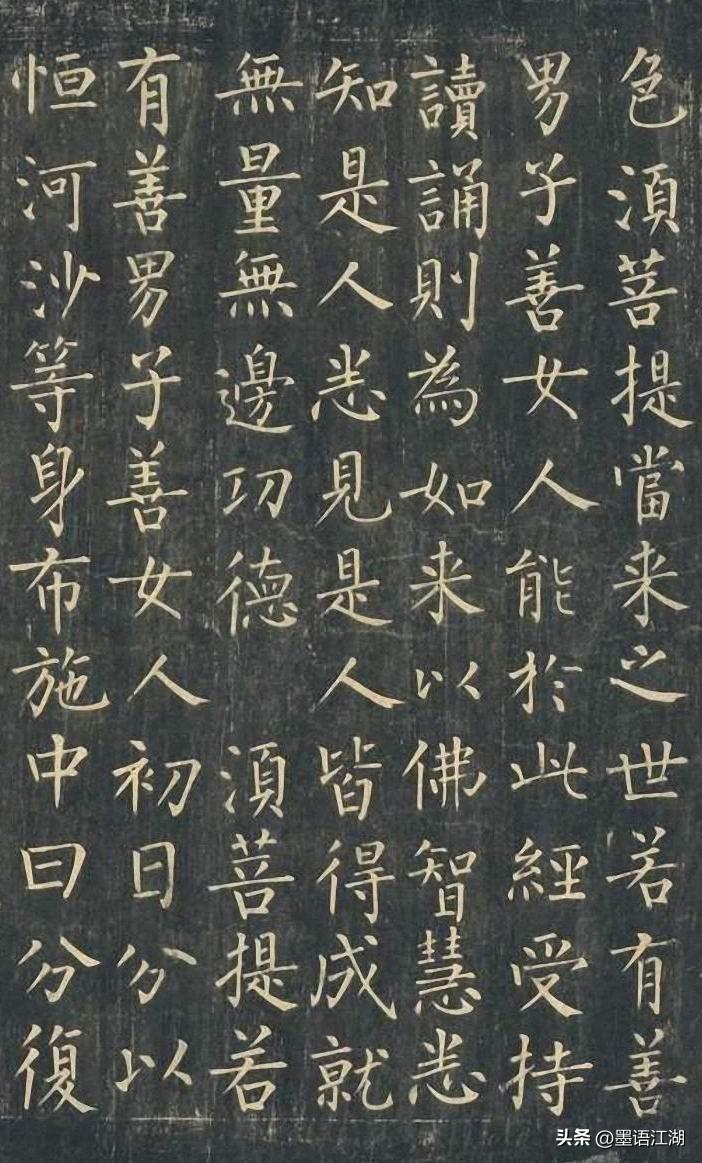 色須菩提當来之世若有善
男子善女人能於此經受持
讀誦則為如来以佛智慧悉
知是人悉見是人皆得成就
無量無邊功德 須菩提若
有善男子善女人初日分以
恒河沙等身布施中日分復
头条 @墨语江湖